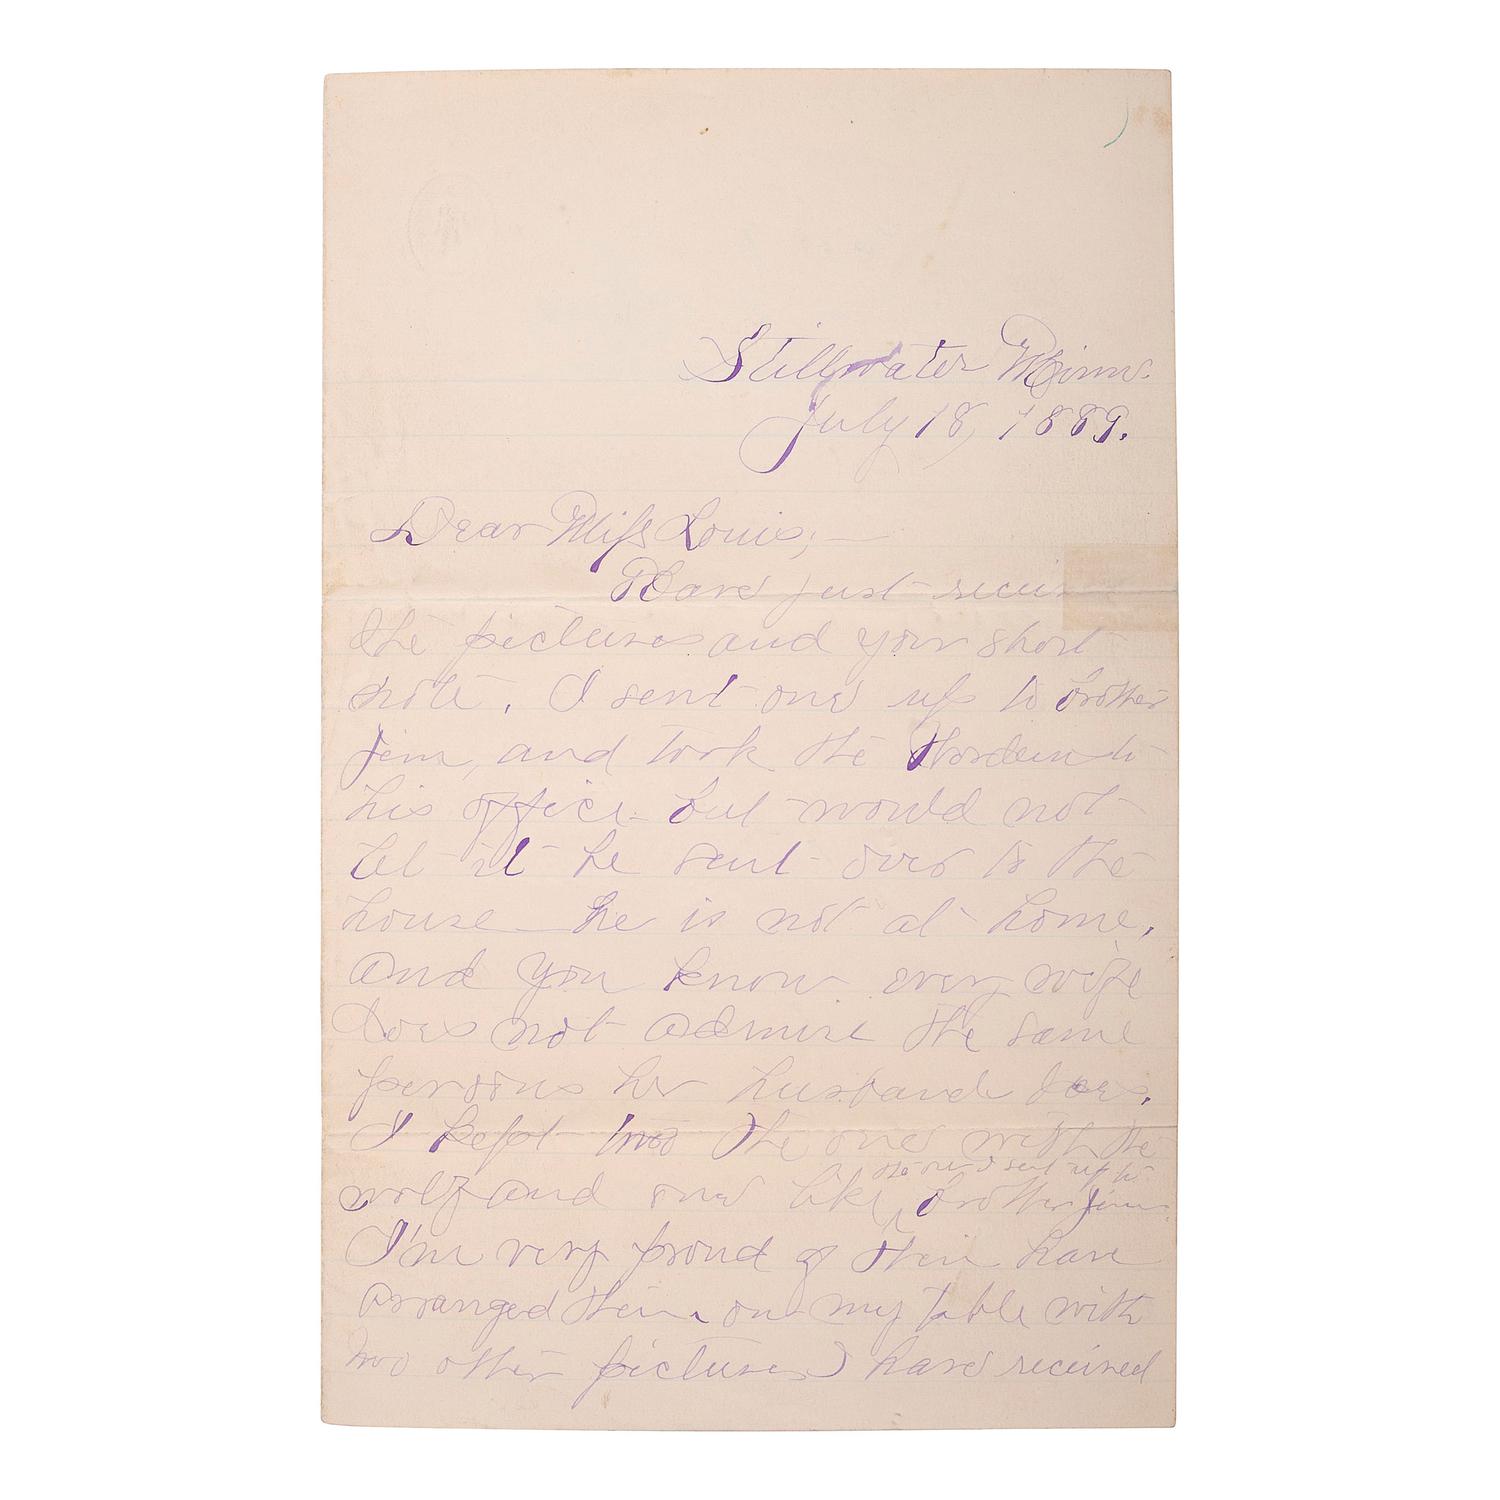 Stillwater Minn.
July 18, 1889.
Dear Miss Louis;—
Have just
the pictures and your short
note. I sent one up to brother
Jim, and took the to
his office but would not
let it be sent over to the
house — he is not at home,
and you know every wife
does not admire the same
persons her husband does.
I kept two the one with the
wolf and one like the one I sent up to brother Jim.
I'm very proud of them have
arranged them on my table with
two other pictures I have received